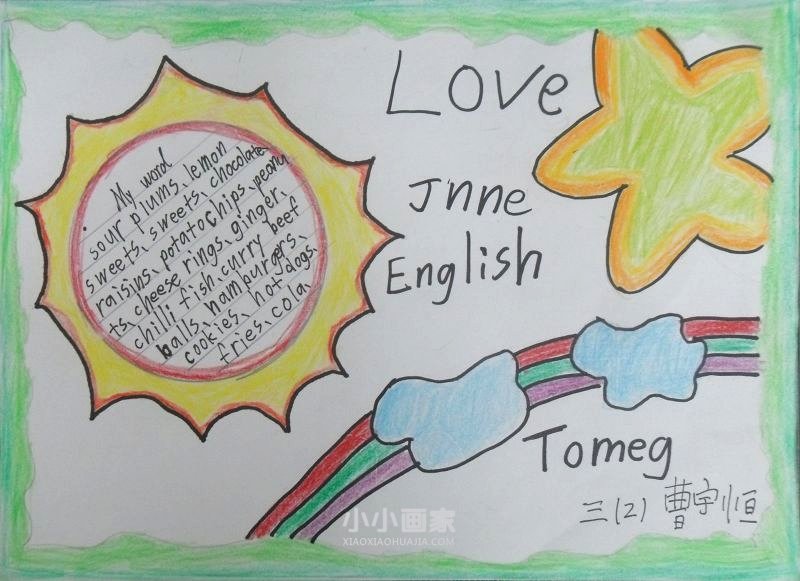 My word
sour plums、lemon
sweets、sweets、chocolate
raisins、potato chips、peanu
ts、cheese rings、ginger、
chilli fish、curry beef
balls、hamburgers、
cookies、hot dogs、
fries、cola、
Love
Jnne
English
Tomeg
三(2) 曹宇恒
小小画家
XIAOXIAOHUAJIA.COM